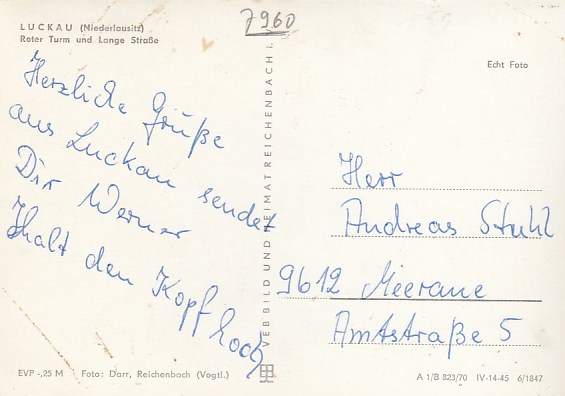 7960
LUCKAU (Niederlausitz)
Roter Turm und Lange Straße
Echt Foto
Herzliche Grüße
aus Luckau sendet
Dir Werner
halt den Kopf hoch
VEB BILD UND HEIMAT REICHENBACH I. V.
Herr
Andreas Stuhl
9612 Meerane
Amtstraße 5
EVP -,25 M Foto: Darr, Reichenbach (Vogtl.)
A 1/B 823/70 IV-14-45 6/1847